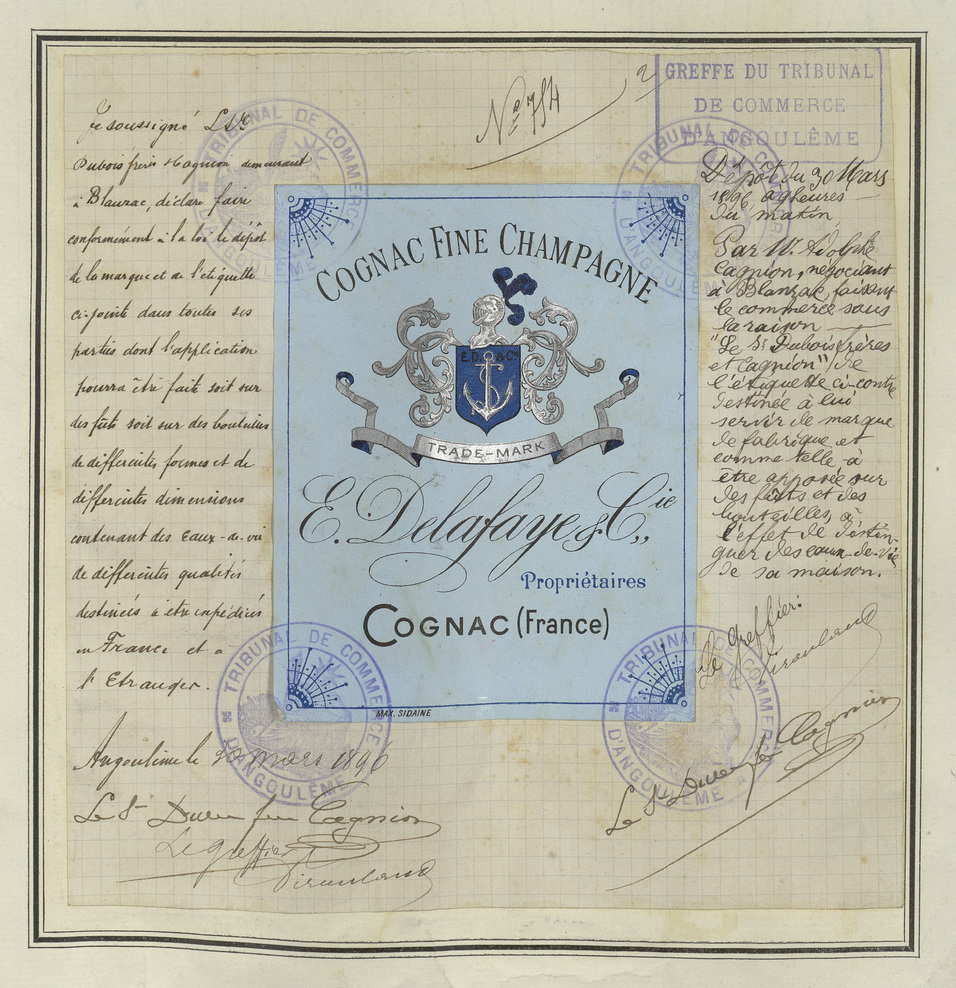 Nº 784
2
GREFFE DU TRIBUNAL
DE COMMERCE
D'ANGOULÊME
Je soussigné
Dubois frères & Cagnion demeurant
à Blanzac, déclare faire
conformément à la loi le dépôt
de la marque et de l'étiquette
ci-jointe dans toutes ses
parties dont l'application
pourra être faite soit sur
des futs soit sur des bouteilles
de différentes formes et de
différentes dimensions
contenant des Eaux-de-vie
de différentes qualités
destinées à être expédiées
en France et a
l'Etranger.
Angoulême le 30 mars 1896
Le Sr Cagnion
Le greffier
COGNAC FINE CHAMPAGNE
E.D. & Cie
TRADE-MARK
E. Delafaye & Cie,,
Propriétaires
COGNAC (France)
MAX. SIDAINE
Dépôt du 30 Mars
1896, à 9 heures
du matin
Par M. Adolphe
Cagnion, négociant
à Blanzac, faisant
le commerce sous
la raison
"Le Sr Dubois frères
et Cagnion", de
l'étiquette ci-contre
destinée à lui
servir de marque
de fabrique et
comme telle à
être apposée sur
des futs et des
bouteilles, à
l'effet de distin-
guer des eaux-de-vie
de sa maison.
Le Greffier:
Le Sr Cagnion
TRIBUNAL DE COMMERCE
D'ANGOULÊME
TRIBUNAL DE COMMERCE
D'ANGOULÊME
TRIBUNAL DE COMMERCE
D'ANGOULÊME
TRIBUNAL DE COMMERCE
D'ANGOULÊME